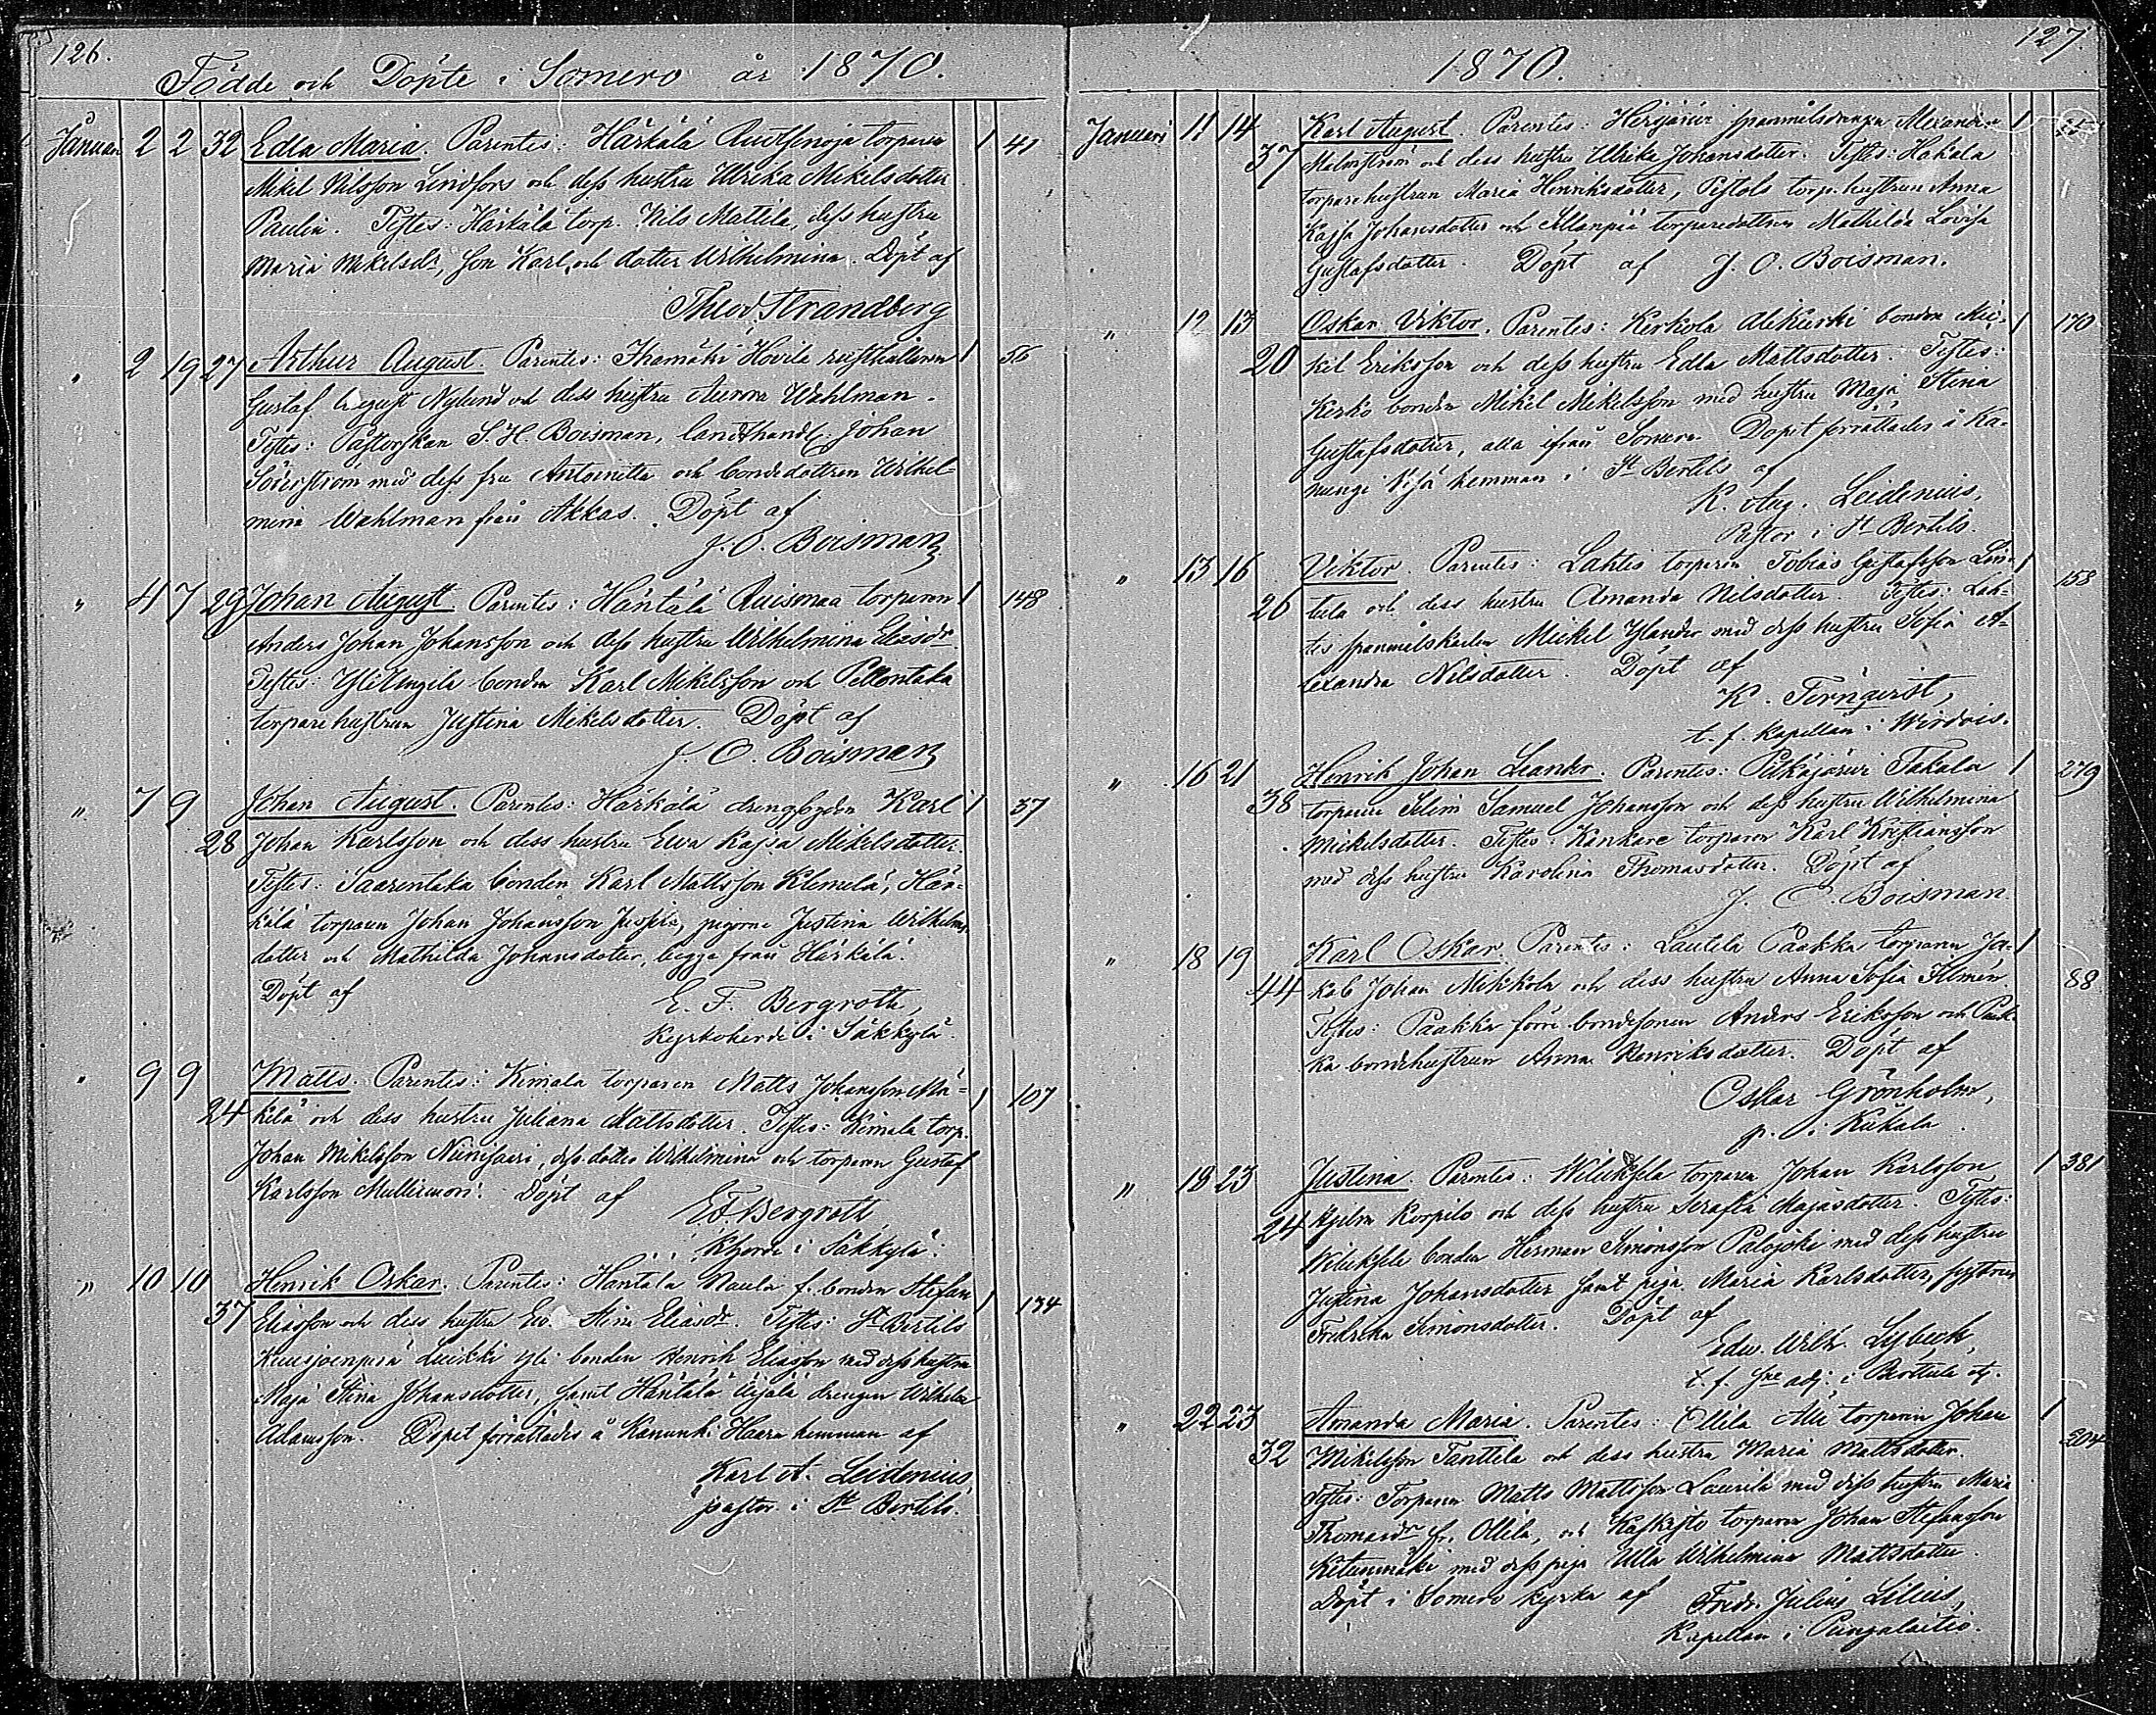 126.
Födde och Döpte i Somero år 1870.
Januari 2 2 32 Edla Maria. Parentes: Härkälä torparen 1 41
Mikel Nilsson Lindfors och dess hustru Ulrika Mikelsdotter
Paulin. Testes: Härkälä torp. Nils Mattila, dess hustru
Maria Mikelsdr, son Karl och dotter Wilhelmina. Döpt af
Theod. Strandberg
" 2 19 27 Arthur August. Parentes: Ihamäki Hovila rusthållaren 1 56
Gustaf August Nylund och dess hustru Aurora Wahlman.
Testes: Pastorskan S. H. Boisman, landthandl. Johan
Söderström med dess fru Antoinetta och bondedottren Wilhel-
mina Wahlman från Akkas. Döpt af
J. O. Boisman
" 4 7 29 Johan August. Parentes: Häntälä Ruismaa torparen 1 148
Anders Johan Johansson och dess hustru Wilhelmina Eliasdr.
Testes: Yli Ungila bonden Karl Mikelsson och Pellontaka
torparehustrun Justina Mikelsdotter. Döpt af
J. O. Boisman
" 7 9 Johan August. Parentes: Härkälä Karl 1 37
28 Johan Karlsson och dess hustru Eva Kajsa Mikelsdotter.
Testes: Saarentaka bonden Karl Mattsson Klemelä, Här-
kälä torparen Johan Johansson pigorna Justina Wilhelms-
dotter och Mathilda Johansdotter, begge från Härkälä.
Döpt af E. F. Bergroth,
Kyrkoherde i Säkkylä.
" 9 9 Matts. Parentes: Kimala torparen Matts Johansson Mä- 1 107
24 kilä och dess hustru Juliana Mattsdotter. Testes: Kimala torp.
Johan Mikelsson dess dotter Wilhelmina och torparen Gustaf
Karlsson Döpt af
E. F. Bergroth
Kherde i Säkkylä.
" 10 10 Henrik Oskar. Parentes: Häntälä Naula f. bonden Stefan 1 134
37 Eliasson och dess hustru Eva Stina Eliasdr. Testes: St Bertils
Kuusjoenperä Luikki yli bonden Henrik Eliasson med dess hustru
Maja Stina Johansdotter, samt Häntälä drengen Wilhelm
Adamsson. Dopet förrättades å Kanunki Haara hemman af
Karl A. Leidenius
pastor i St Bertils.
127.
1870.
Januari 11 14 Karl August. Parentes: Hirsjärvi spanmålsdrengen Alexander 1
37 Malmström och dess hustru Ulrika Johansdotter. Testes: Hakala
torparehustrun Maria Henriksdotter, Pistols torp. hustrun Anna
Kajsa Johansdotter och torparedottren Mathilda Lovisa
Gustafsdotter. Döpt af J. O. Boisman.
" 12 13 Oskar Viktor. Parentes: Kerkola Alikurki bonden Mi- 1 170
20 kel Eriksson och dess hustru Edla Mattsdotter. Testes:
Kerko bonden Mikel Mikelsson med hustru Maja Stina
Gustafsdotter, alla ifrån Somero. Dopet förrättades i Ka-
nungi hemman i St Bertils af
K. Aug. Leidenius,
Pastor i St Bertils.
" 13 16 Viktor. Parentes: Lahtis torparen Tobias Gustafsson Lin- 1 158
26 tula och dess hustru Amanda Nilsdotter. Testes: Lah-
tis spanmålskarlen Mickel Ylander med dess hustru Sofia A-
lexandra Nilsdotter. Döpt af
K. Ternqvist,
t. f. kapellan i Wirdois.
" 16 21 Henrik Johan Leander. Parentes: Pitkäjärvi Takala 1 279
38 torparen Selim Samuel Johansson och dess hustru Wilhelmina
Mickelsdotter. Testes: Kankare torparen Karl Kristiansson
med dess hustru Karolina Thomasdotter. Döpt af
J. O. Boisman.
" 18 19 Karl Oskar. Parentes: Lautela Paakka torparen Ja- 1
44 kob Johan Mikkola och dess hustru Anna Sofia Ilmén 88
Testes: Paakka förre bondesonen Anders Eriksson och Paak-
ka bondehustrun Anna Henriksdotter. Döpt af
Oskar Grönholm,
p. i Kiikala.
" 18 23 Justina. Parentes: Wiluksela torparen Johan Karlsson 1 381
24 Korpilo och dess hustru Serafia Majasdotter. Testes:
Wiluksela bonden Herman Simonsson Palojoki med dess hustru
Justina Johansdotter samt piga Maria Karlsdotter,
Fredrika Simonsdotter. Döpt af
Edw. Wilh. Lybeck,
t. f. adj. i
" 22 23 Amanda Maria. Parentes: Ollila Ali torparen Johan 1
32 Mikelsson Tanttila och dess hustru Maria Mattsdotter. 204
Testes: Torparen Matts Mattsson Laurila med dess hustru Maria
Thomasdr fr. Ollila, och Kaskisto torparen Johan Stefansson
Ketunmäki med dess piga Ulla Wilhelmina Mattsdotter.
Döpt i Somero kyrka af Fredr. Julius Lilius,
Kapellan i Pungalaitio.